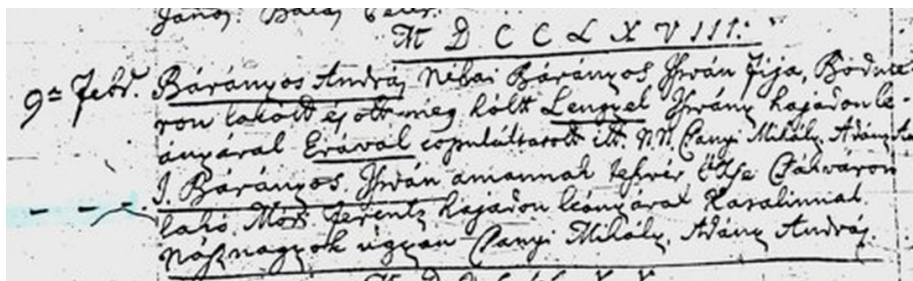 János. Balás Péter.
M D C C L X V I I I:
9a Febr. Bárányos András Néhai Bárányos István fija, Bodmé-
ron lakott és ott meg hólt Lengyel István hajadon le-
ányával Évával copuláltatott itt. N.N. Csanyi Mihály, Adány
I. Bárányos István amannak testvér öttse Csákváron
lakó Móró Ferentz hajadon leányával Katalinnal.
Násznagyok ugyan Csanyi Mihály, Adány András.